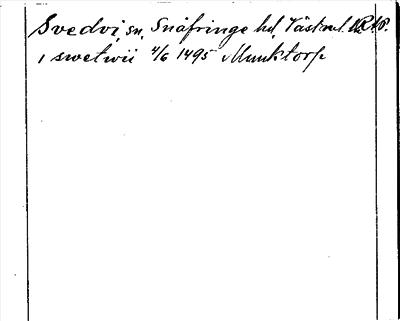 Svedvi, sn, Snåfringe hd, Västml.
i swetwii 4/6 1495 Munktorp